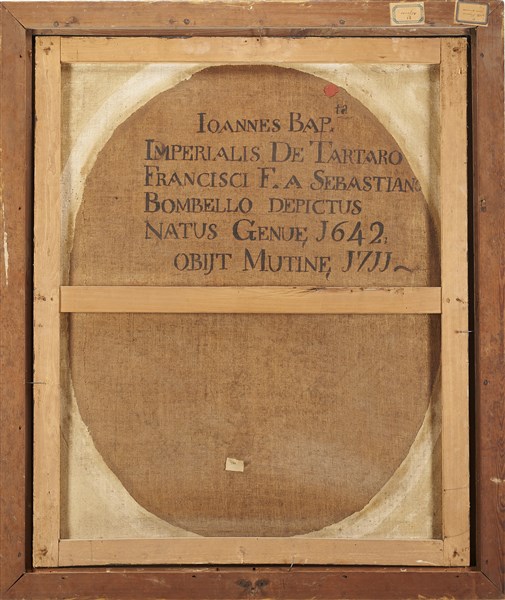 IOANNES BAP.ta
IMPERIALIS, DE TARTARO
FRANCISCI F. A SEBASTIANO
BOMBELLO DEPICTUS
NATUS GENUĘ, 1642,
OBIJT MUTINĘ, 1711